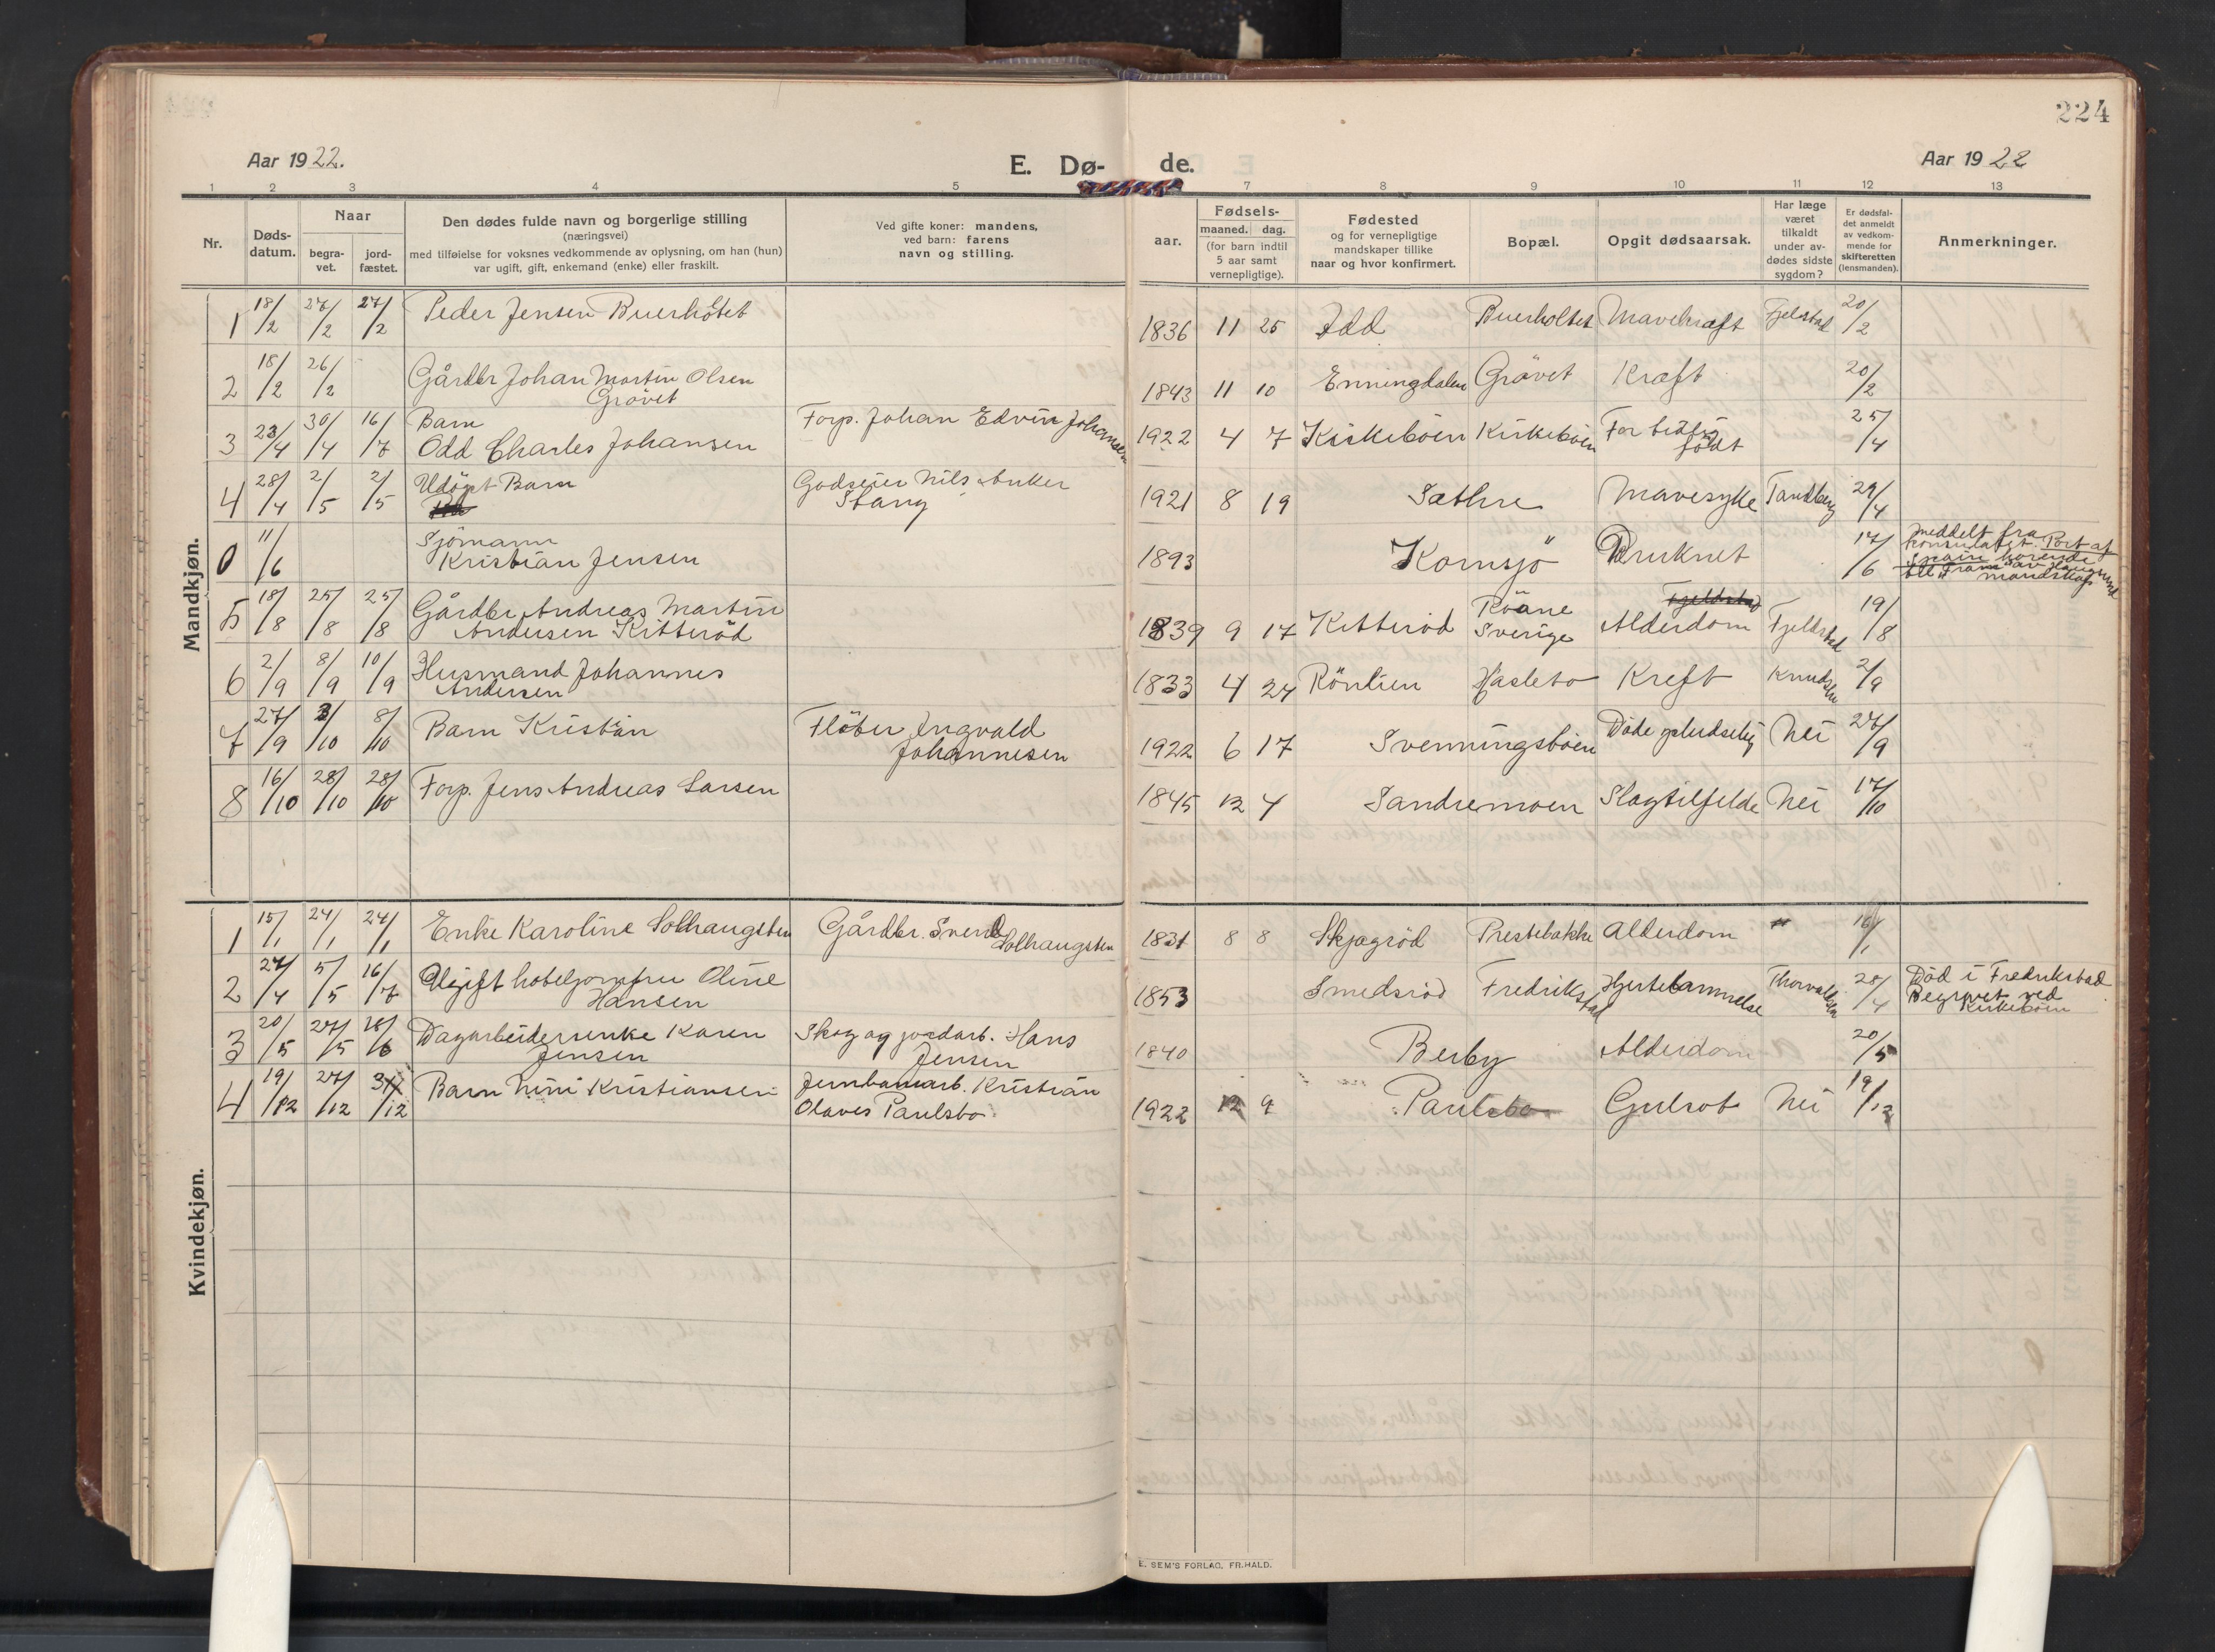 224
Aar 1922.
E. Dø-
de.
Aar 1922
1 2 3 4 5 7 8 9 10 11 12 13
Nr.
Døds-
datum.
Naar
begra-
vet.
jord-
fæstet.
Den dødes fulde navn og borgerlige stilling
(næringsvei)
med tilføielse for voksnes vedkommende av oplysning, om han (hun)
var ugift, gift, enkemand (enke) eller fraskilt.
Ved gifte koner: mandens,
ved barn: farens
navn og stilling.
aar.
Fødsels-
maaned. dag.
(for barn indtil
5 aar samt
vernepligtige).
Fødested
og for vernepligtige
mandskaper tillike
naar og hvor konfirmert.
Bopæl.
Opgit dødsaarsak.
Har læge
været
tilkaldt
under av-
dødes sidste
sygdom?
Er dødsfal-
det anmeldt
av vedkom-
mende for
skifteretten
(lensmanden).
Anmerkninger.
Mandkjøn.
1 18/2 27/2 27/2 Peder Jensen Buerholtet 1836 11 25 Idd Buerholtet Mavekræft Fjelstad 20/2
2 18/2 26/2 Gårdbr Johan Martin Olsen
Grövet 1843 11 10 Enningdalen Grövet Kræft 20/2
3 23/4 30/4 16/7 Barn
Odd Charles Johansen Forp. Johan Edvin Johansen 1922 4 7 Kirkeböen Kirkeböen For tidlig
födt 25/4
4 28/4 2/5 2/5 Udöpt Barn
Godseier Nils Anker
Stang 1921 8 19 Sæthre Mavesyke Tandberg 29/4
0 11/6 Sjömann
Kristian Jensen 1893 Kornsjö Druknet 17/6 Meddelt fra
konsulatet. Port af
Spain hørende
till Fram
mandskap
5 18/8 25/8 25/8 Gårdbr Andreas Martin
Andersen Kitteröd 1839 9 17 Kitteröd Rääne
Sverige Fjeldstad
Alderdom Fjeldstad 19/8
6 2/9 8/9 10/9 Husmand Johannes
Andersen 1833 4 24 Rönlien Hasleto Kreft Knudsen 2/9
7 27/9 3/10 8/10 Barn Kristian Flöter Ingvald
Johannesen 1922 6 17 Svenningsböen Döde pludselig Nei 27/9
8 16/10 28/10 28/10 Forp. Jens Andreas Larsen 1845 12 4 Sandremoen Slagtilfelde Nei 17/10
Kvindekjøn.
1 15/1 24/1 24/1 Enke Karoline Solhaugsten Gårdbr. Svend
Solhaugsten 1831 8 8 Skjagröd Prestebakke Alderdom " 16/1
2 27/4 5/5 16/7 Ugift hoteljomfru Oline
Hansen 1853 Smedsröd Fredrikstad Hjertelammelse Thorvaldsen 28/4 Död i Fredrikstad
Begravet ved
Kirkeböen
3 20/5 27/5 18/6 Dagarbeidersenke Karen
Jensen Skog og jordarb. Hans
Jensen 1840 Berby Alderdom 20/5
4 19/12 27/12 31/12 Barn Nini Kristiansen Jernbanearb. Kristian
Olaves Paulsbo 1922 12 9 Paulsbo Gulsot Nei 19/12
E. SEM'S FORLAG, FR.HALD.